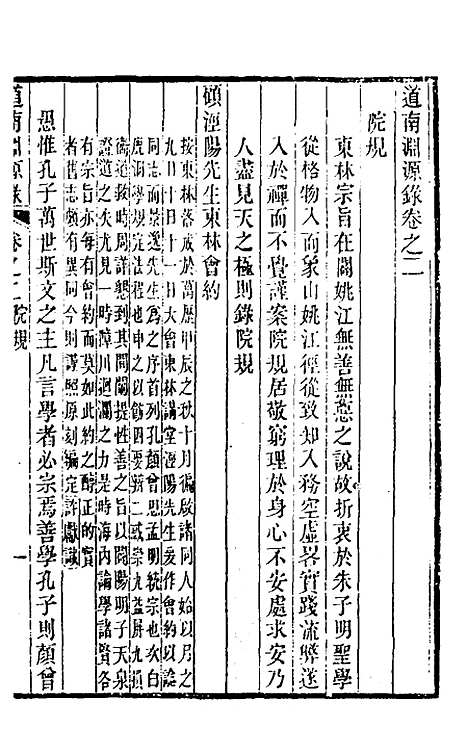 道南淵源錄卷之二
院規
東林宗旨在闢姚江無善無惡之說故折衷於朱子明聖學
從格物入而象山姚江徑從致知入務空虛畧實踐流弊遂
入於禪而不覺謹案院規居敬窮理於身心不安處求安乃
人盡見天之極則錄院規
顧涇陽先生東林會約
按東林落成於萬歷甲辰之秋十月偏啟諸同人始以月之
九日十日十一日大會東林講堂涇陽先生爰作會約以諗
同志而景逸先生為之序首列孔顏曾思孟明統宗也次白
鹿洞學規定法程也申之以飭四要辨二惑崇九益屏九損
衛道救時周詳懇到其間闡提性善之旨以闢陽明子天泉
證道之失尤見一時障川迴瀾之力是時海內論學諸賢各
有宗旨亦每有會約而莫如此約之醇正的實
者舊志頗有異同今則謹照原刻編定許獻識
愚惟孔子萬世斯文之主凡言學者必宗焉善學孔子則顏曾
道南淵源錄 卷之二 院規 一